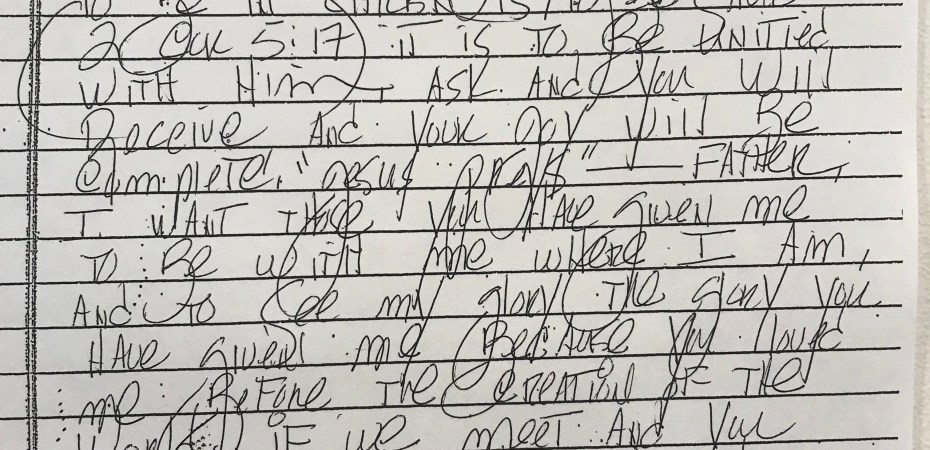 2 Cor 5:17 it is to Be United
With Him, Ask And You Will
Receive And Your Joy Will Be
Complete. "Jesus prays" — FATHER,
I WANT those You HAve given me
TO Be WiTH me where I Am,
And to See my glory, the glory You
HAve given me BecAuse You loved
me BeFore The CreATion oF THe
iF we meeT And You